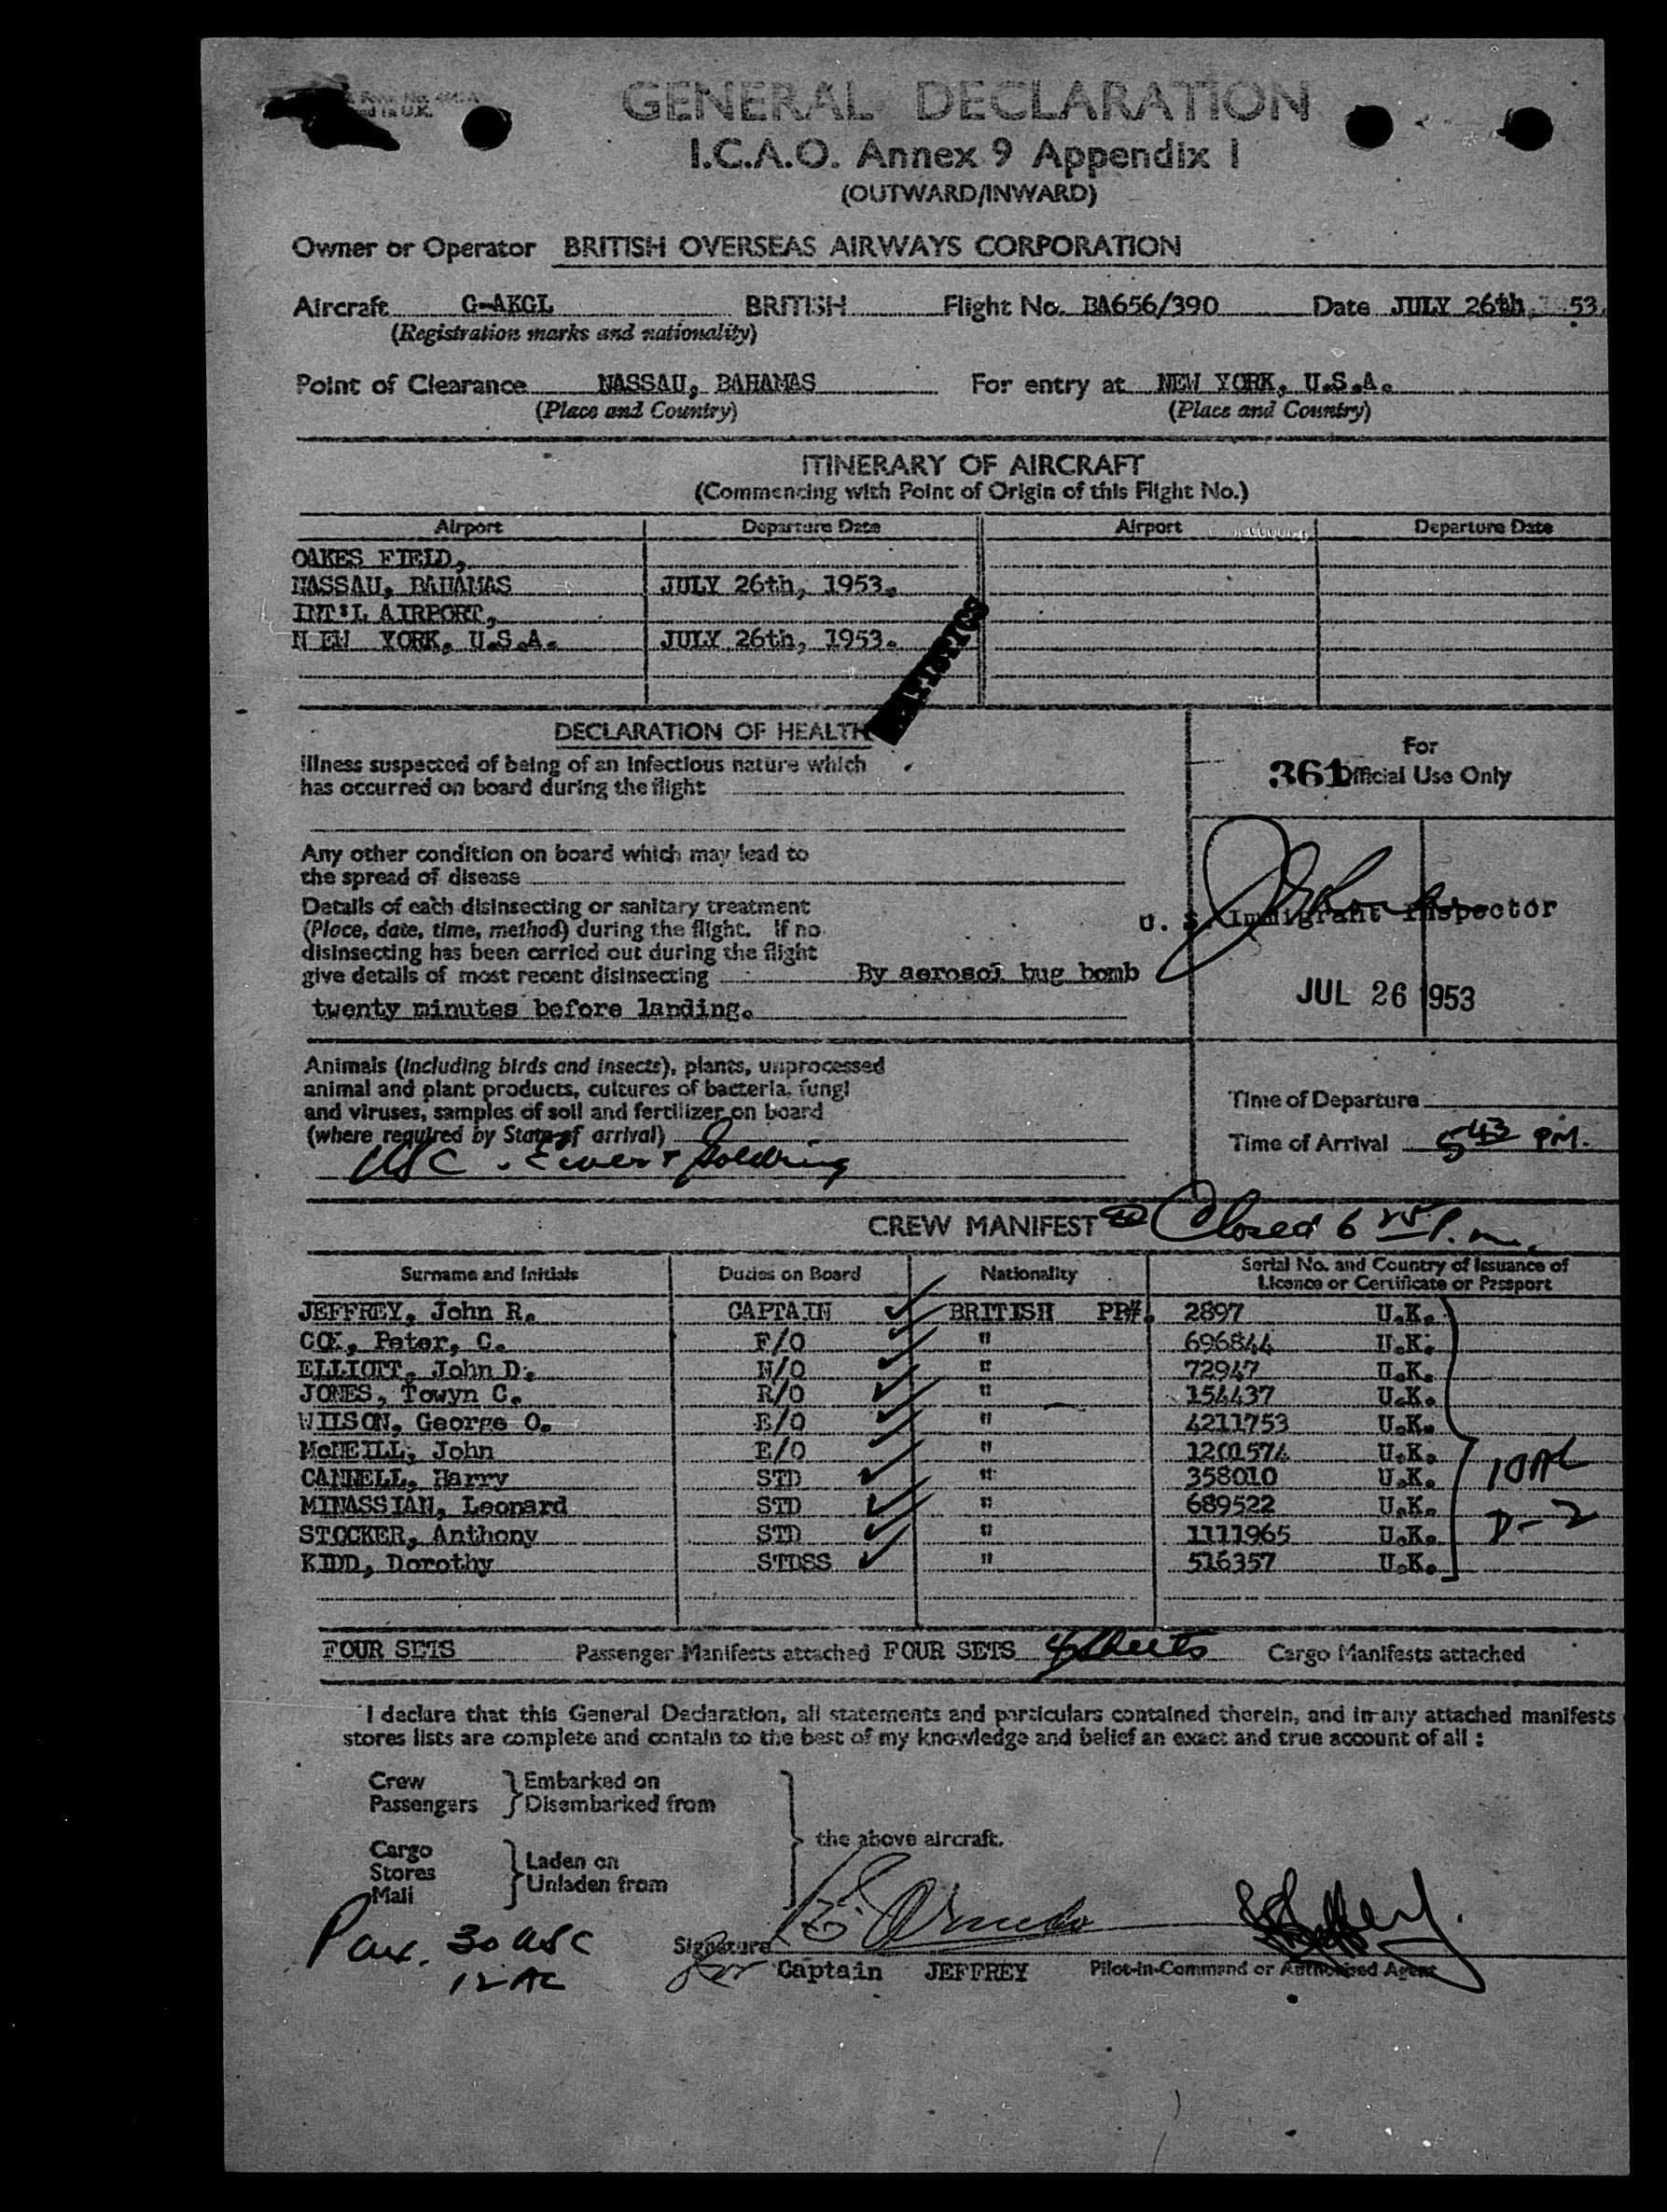 in U.K.
GENERAL DECLARATION
I.C.A.O. Annex 9 Appendix I
(OUTWARD/INWARD)
Owner or Operator BRITISH OVERSEAS AIRWAYS CORPORATION
Aircraft G-AKGL BRITISH Flight No. BA656/390 Date JULY 26th, 1953.
(Registration marks and nationality)
Point of Clearance NASSAU, BAHAMAS For entry at NEW YORK, U.S.A.
(Place and Country) (Place and Country)
ITINERARY OF AIRCRAFT
(Commencing with Point of Origin of this Flight No.)
Airport Departure Date Airport Departure Date
OAKES FIELD,
NASSAU, BAHAMAS JULY 26th, 1953.
INT'L AIRPORT,
N EW YORK, U.S.A. JULY 26th, 1953.
STATISTICS
DECLARATION OF HEALTH
Illness suspected of being of an infectious nature which
has occurred on board during the flight
For
361 Official Use Only
Any other condition on board which may lead to
the spread of disease
Details of each disinsecting or sanitary treatment
(Place, date, time, method) during the flight. If no
disinsecting has been carried out during the flight
give details of most recent disinsecting By aerosol bug bomb
twenty minutes before landing.
U. S. Immigrant Inspector
JUL 26 1953
Animals (including birds and insects), plants, unprocessed
animal and plant products, cultures of bacteria, fungi
and viruses, samples of soil and fertilizer on board
(where required by State of arrival)
Time of Departure
Time of Arrival 5 43 PM.
CREW MANIFEST Closed 6 25 P.m.
Surname and Initials Duties on Board Nationality Serial No. and Country of Issuance of
Licence or Certificate or Passport
JEFFREY, John R. CAPTAIN BRITISH PP#. 2897 U.K.
COX, Peter, C. F/O " 696844 U.K.
ELLIOTT, John D. N/O " 72947 U.K.
JONES, Towyn C. R/O " 154437 U.K.
WILSON, George O. E/O " 4211753 U.K.
McNEILL, John E/O " 1201574 U.K.
CANNELL, Harry STD " 358010 U.K.
MINASSIAN, Leonard STD " 689522 U.K.
STOCKER, Anthony STD " 1111965 U.K.
KIDD, Dorothy STDSS " 516357 U.K.
10 AL
D-2
FOUR SETS Passenger Manifests attached FOUR SETS 4 sheets Cargo Manifests attached
I declare that this General Declaration, all statements and particulars contained therein, and in any attached manifests
stores lists are complete and contain to the best of my knowledge and belief an exact and true account of all :
Crew Embarked on
Passengers Disembarked from
the above aircraft.
Cargo
Stores Laden on
Mail Unladen from
Pax. 30 USC
12 AL
Signature
for Captain JEFFREY Pilot-in-Command or Authorised Agent